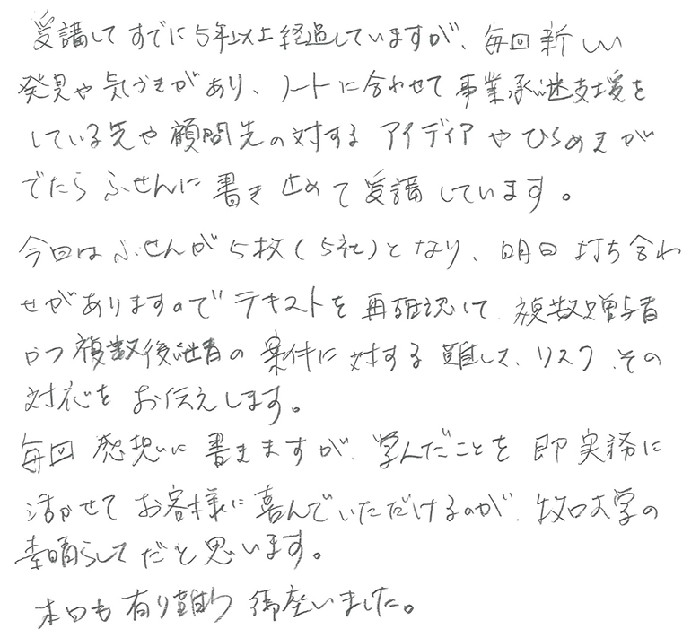 受講してすでに5年以上経過していますが、毎回新しい
発見や気づきがあり、ノートに合わせて事業承継支援を
している先や顧問先の対する アイディアやひらめきが
でたら ふせんに 書き止めて受講しています。
今回はふせんが5枚(5社)となり、明日 打ち合わ
せがありますのでテキストを再確認して、複数贈与者
かつ複数後継者の案件に対する難しさ、リスク、その
対応をお伝えします。
毎回 感想に書きますが、学んだことを即実務に
活かせてお客様に喜んでいただけるのが、牧口大学の
素晴らしさだと思います。
本日も有り難う御座いました。